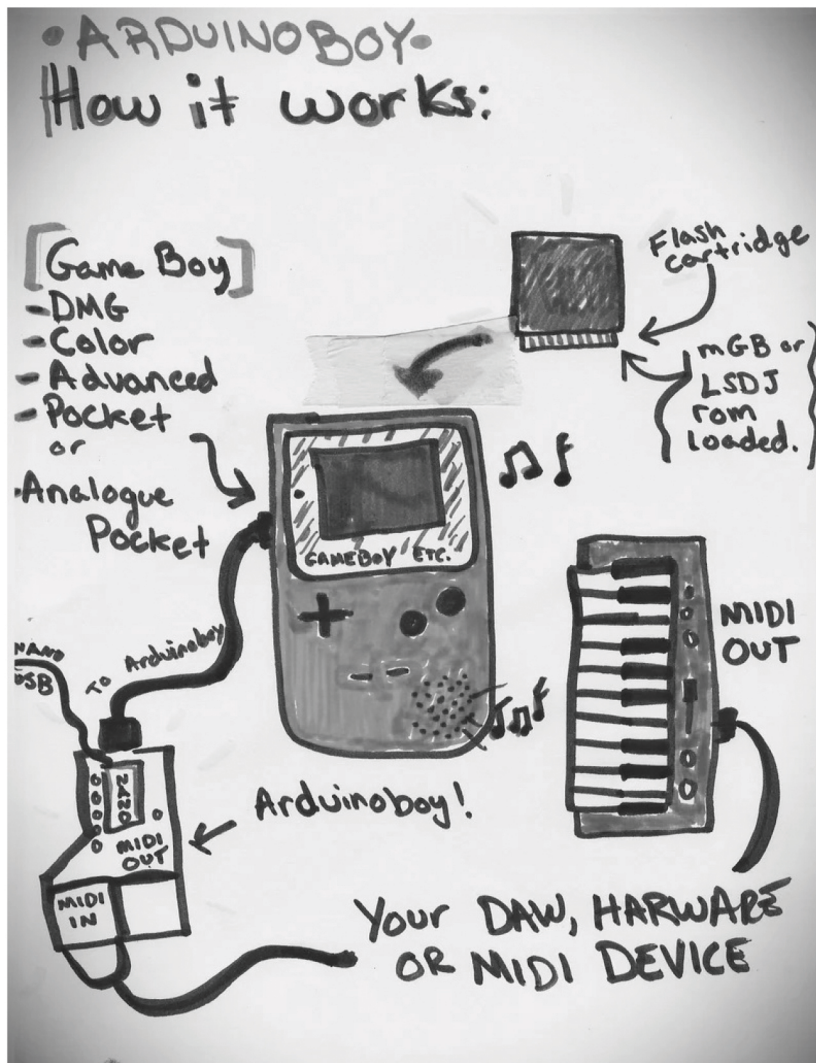 • ARDUINOBOY •
How it works:
[Game Boy]
- DMG
- Color
- Advanced
- Pocket
or
• Analogue
Pocket
Flash
cartridge
mGB or
LSDJ
rom
loaded.
GAMEBOY ETC.
MIDI
OUT
NANO
USB
TO Arduinoboy
MIDI
OUT
MIDI
IN
Arduinoboy!
Your DAW, HARWARE
OR MIDI DEVICE